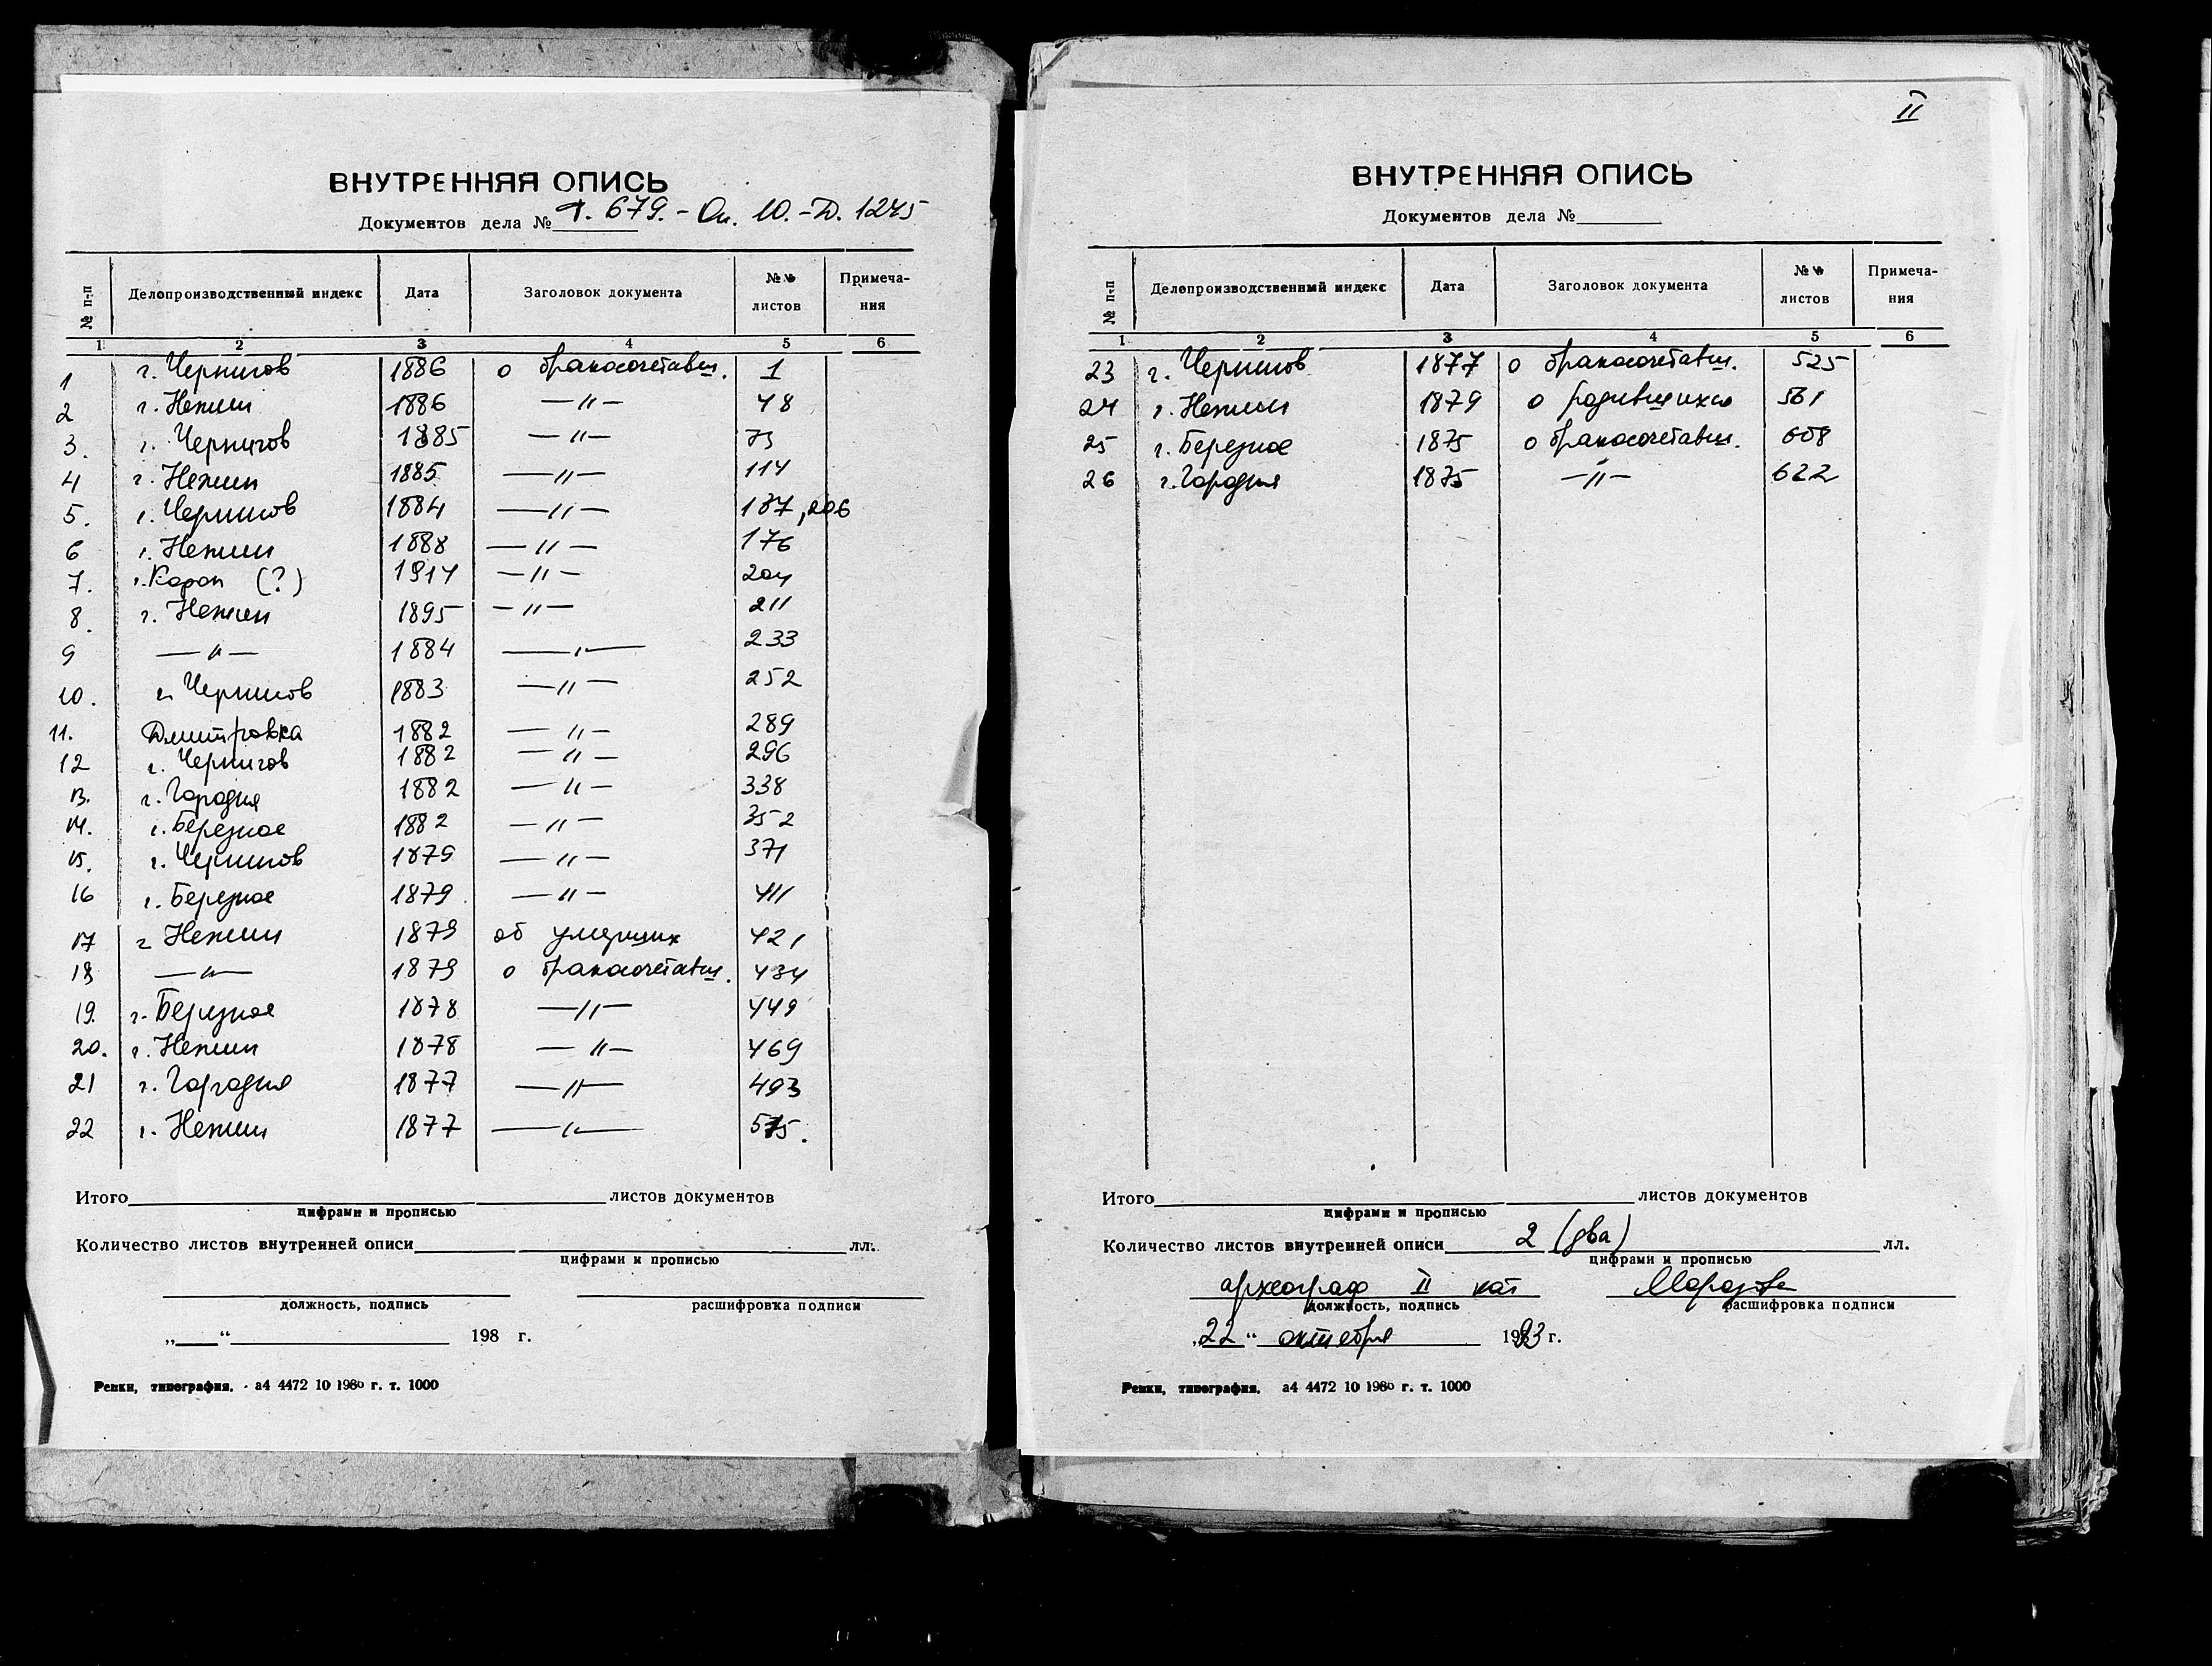 ВНУТРЕННЯЯ ОПИСЬ
Документов дела № Ф. 679. - Оп. 10. - Д. 1245
№ п-п Делопроизводственный индекс Дата Заголовок документа №№ листов Примечания
1 2 3 4 5 6
1 г. Чернигов 1886 о бракосочетавш. 1
2 г. Нежин 1886 —"— 48
3. г. Чернигов 1885 —"— 73
4 г. Нежин 1885 —"— 114
5. г. Чернигов 1884 —"— 137, 206
6 г. Нежин 1888 —"— 176
7. г. Короп (?) 1914 —"— 204
8. г. Нежин 1895 —"— 211
9 —"— 1884 —"— 233
10. г. Чернигов 1883 —"— 252
11. Дмитровка 1882 —"— 289
12 г. Чернигов 1882 —"— 296
13. г. Городня 1882 —"— 338
14. г. Березное 1882 —"— 352
15. г. Чернигов 1879 —"— 371
16 г. Березное 1879 —"— 411
17 г Нежин 1879 об умерших 421
18 —"— 1879 о бракосочетавш. 434
19. г. Березное 1878 —"— 449
20. г. Нежин 1878 —"— 469
21 г. Городня 1877 —"— 493
22 г. Нежин 1877 —"—
Итого листов документов
цифрами и прописью
Количество листов внутренней описи лл.
цифрами и прописью
должность, подпись расшифровка подписи
„ “ 198 г.
Репки, типография. а4 4472 10 1986 г. т. 1000
II
ВНУТРЕННЯЯ ОПИСЬ
Документов дела №
№ п-п Делопроизводственный индекс Дата Заголовок документа №№ листов Примечания
1 2 3 4 5 6
23 г. Чернигов 1877 о бракосочетавш. 525
24 г. Нежин 1879 о родившихся 561
25 г. Березное 1875 о бракосочетавш. 608
26 г. Городня 1875 —"— 622
Итого листов документов
цифрами и прописью
Количество листов внутренней описи 2 (два) лл.
цифрами и прописью
археограф II кат Морозова
должность, подпись расшифровка подписи
„22“ октября 1993 г.
Репки, типография. а4 4472 10 1986 г. т. 1000